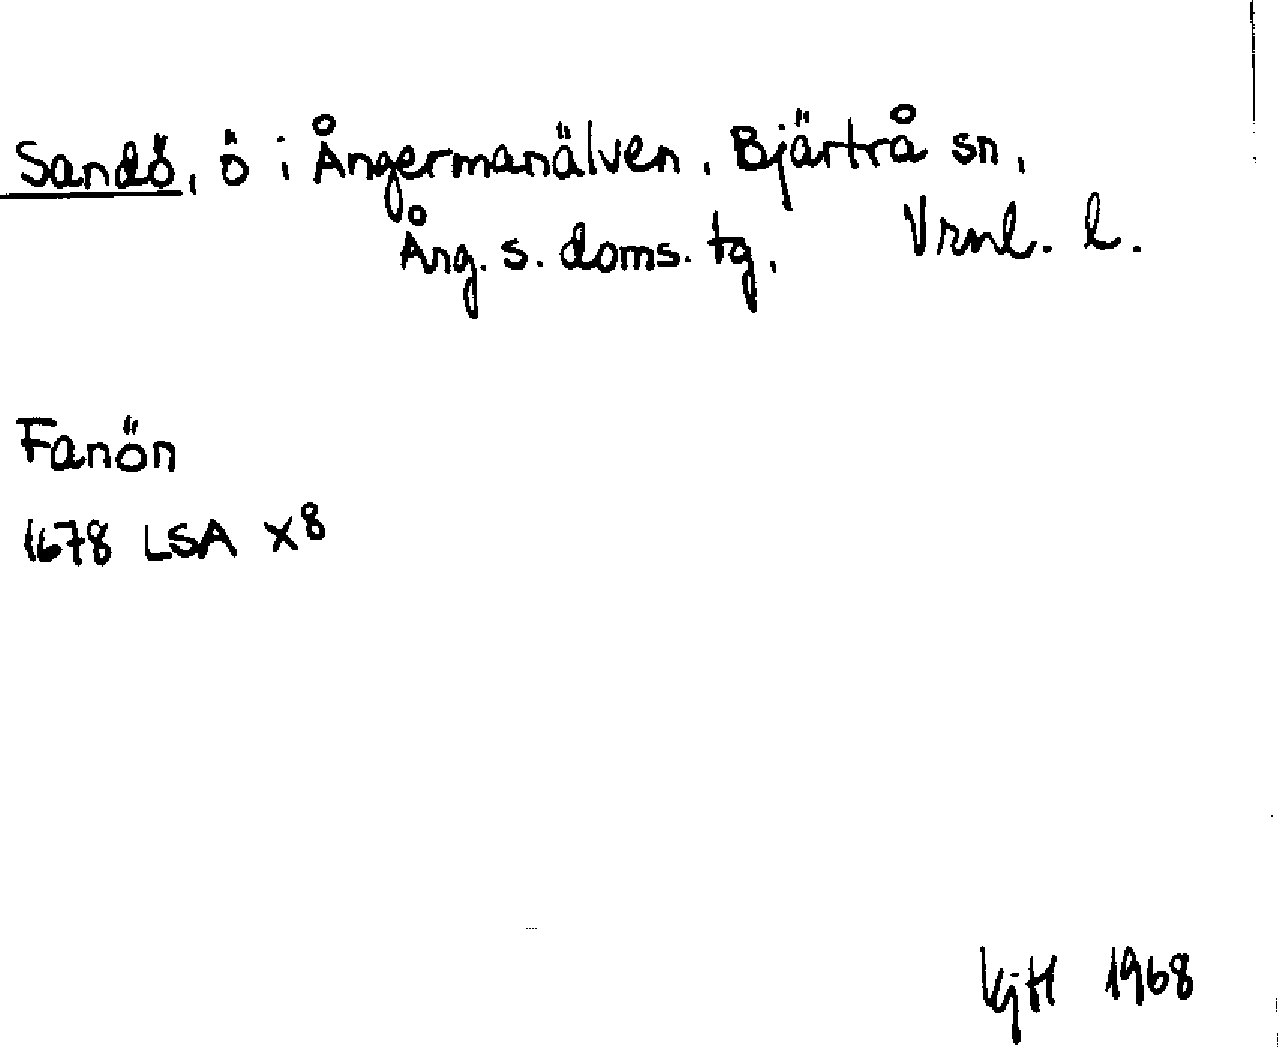 Sandö, ö i Ångermanälven, Bjärtrå sn,
Ång. s. doms. tg, Vrnl. l.
Fanön
1678 LSA X8
KjH 1968